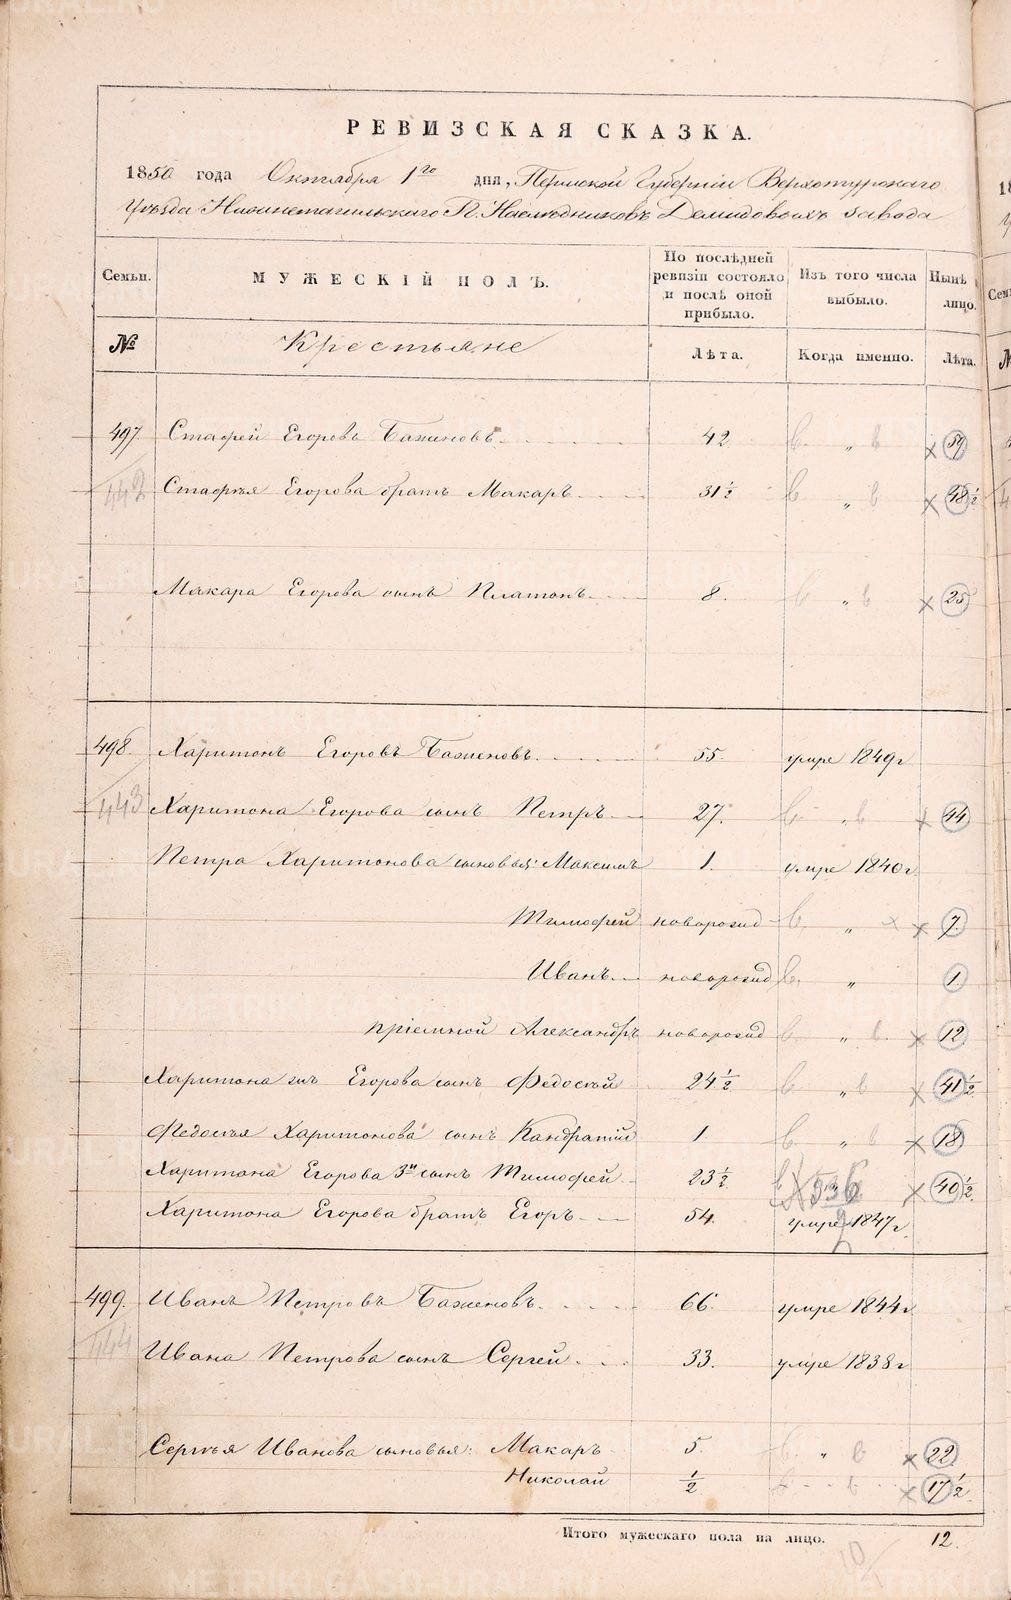 РЕВИЗСКАЯ СКАЗКА.
1850 года Октября 1го дня, Пермской Губернiи Верхотурскаго
Уѣзда Нижнетагильскаго П. Наслѣдниковъ Демидовыхъ завода
Семьи. МУЖЕСКІЙ ПОЛЪ. По послѣдней ревизіи состояло и послѣ оной прибыло. Изъ того числа выбыло. Нынѣ на лицо.
№ Крестьяне Лѣта. Когда именно. Лѣта.
497 Стафей Егоровъ Баженовъ 42 " 59
442 Стафѣя Егорова братъ Макаръ 31 1/2 " 48 1/2
Макара Егорова сынъ Платонъ 8. " 25
498. Харитонъ Егоровъ Баженовъ 55. умре 1849 г
443 Харитона Егорова сынъ Петръ 27. " 44
Петра Харитонова сыновья: Максимъ 1. умре 1840 г.
Тимофей новорожд " 7.
Иванъ новорожд " 1
пріемной Александръ новорожд " 12
Харитона Егорова сынъ Федосѣй 24 1/2 " 41 1/2
Федосѣя Харитонова сынъ Кандратій 1 " 18
Харитона Егорова 3й сынъ Тимофей 23 1/2 40 1/2
Харитона Егорова братъ Егоръ 54. умре 1847 г.
499. Иванъ Петровъ Баженовъ 66. умре 1844 г
444 Ивана Петрова сынъ Сергей 33. умре 1838 г
Сергѣя Иванова сыновья: Макаръ 5. " 22
Николай 1/2 17 1/2
Итого мужескаго пола на лицо. 12.
10
METRIKI.GASO-URAL.RU